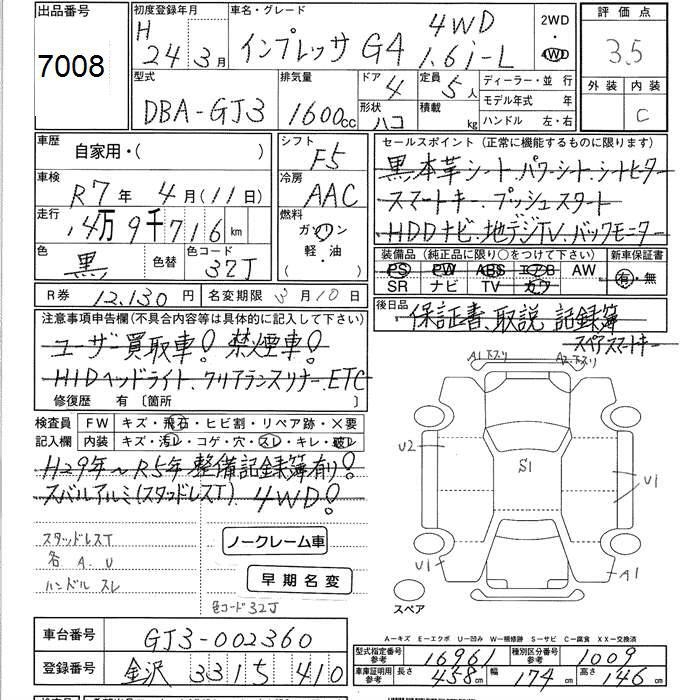 出品番号
7008
初度登録年月
H 24年 3月
車名・グレード
インプレッサ G4 4WD 1.6i-L
2WD
・
4WD
評価点
3.5
外装 内装
C
型式
DBA-GJ3
排気量
1600cc
ドア
4
定員
5人
形状
ハコ
積載
kg
ディーラー・並行
モデル年式 年
ハンドル 左・右
車歴
自家用・( )
シフト
F5
車検
R7年 4月(11日)
冷房
AAC
走行
4万9千716km
燃料
ガソリン
軽・油
( )
色
黒
色替
色コード
32J
セールスポイント(正常に機能するものに限ります)
黒本革シート.パワーシート.シートヒーター
スマートキー.プッシュスタート
HDDナビ.地デジTV.バックモニター
装備品(純正品に限り○をつけて下さい)
PS PW ABS エアB AW
SR ナビ TV カワ
新車保証書
有・無
R券 12,130円
名変期限 3月10日
後日品
保証書、取説 記録簿
スペアスマートキー
注意事項申告欄(不具合内容等は具体的に記入して下さい)
ユーザー買取車! 禁煙車!
HIDヘッドライト.クリアランスソナー.ETC
修復歴 有( )〔箇所 〕
検査員
記入欄
FW キズ・飛石・ヒビ割・リペア跡・×要
内装 キズ・汚レ・コゲ・穴・スレ・キレ・破レ
H29年～R5年 整備記録簿有り!
スバルアルミ(スタッドレスT). 4WD!
スタッドレスT
各 A.U
ハンドル スレ
ノークレーム車
早期名変
色コード32J
A1
A2
U2
S1
U1
U1
A1
スペア
車台番号
GJ3-002360
登録番号
金沢 331 5 410
A―キズ E―エクボ U―凹み W―補修跡 S―サビ C―腐食 XX―交換済
型式指定番号
参考
16961
種別区分番号
参考
1009
車庫証明用
参考
長さ 458cm
幅 174cm
高さ 146cm